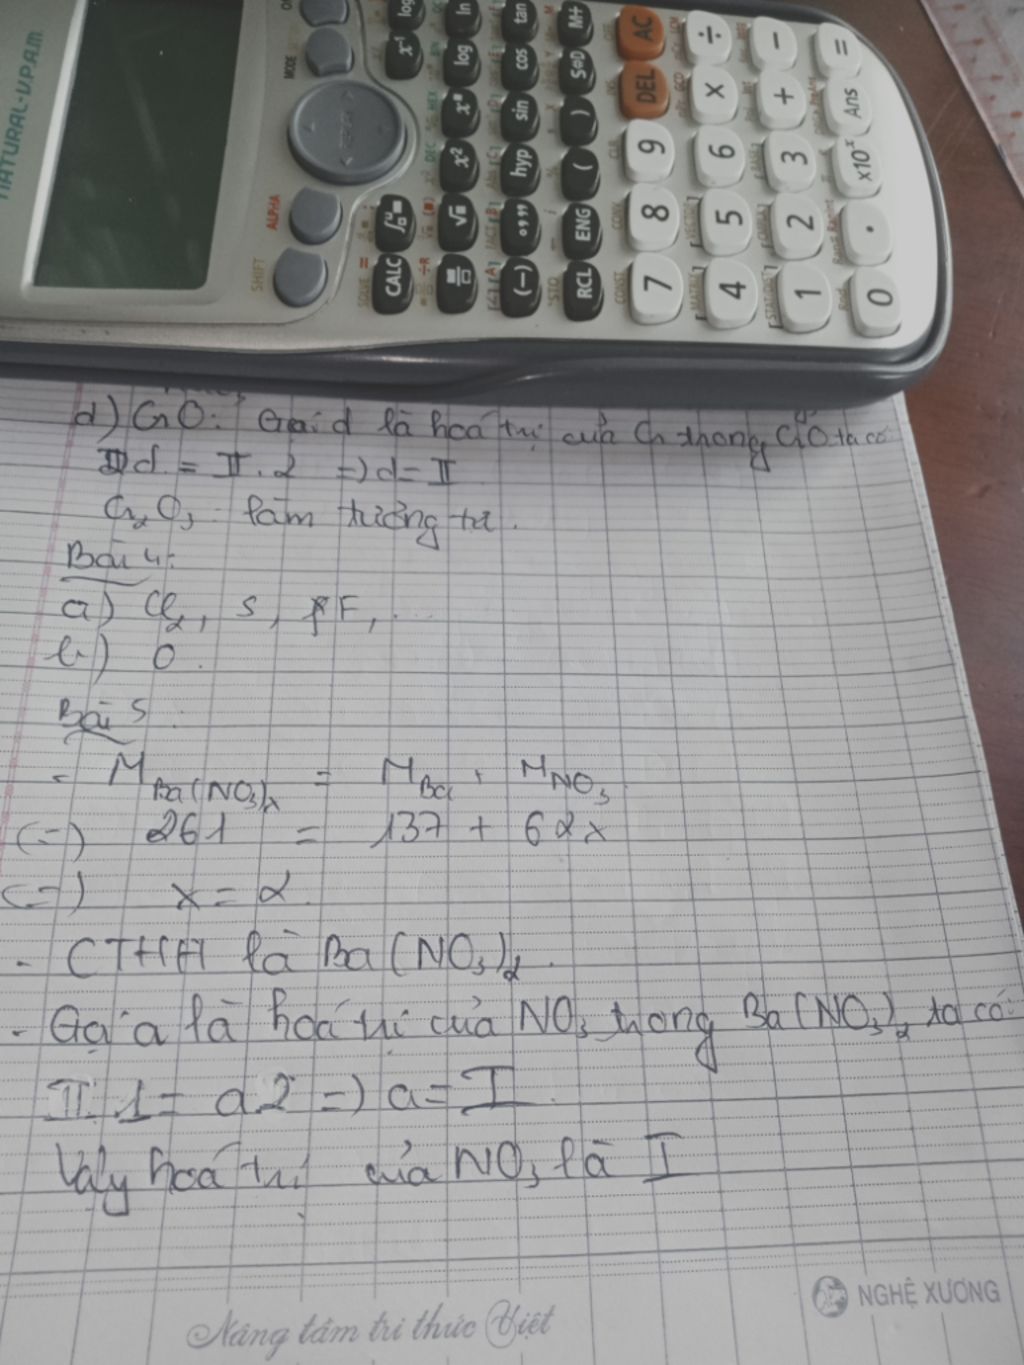 NATURAL-V.P.A.M.
SHIFT ALPHA MODE ON
CALC
x⁻¹ log
√ x² xⁿ log ln
(−) °,,, hyp sin cos tan
RCL ENG ( ) S⇔D M+
7 8 9 DEL AC
4 5 6 × ÷
1 2 3 + −
0 . ×10ˣ Ans =
d) CrO: Gọi d là hoá trị của Cr trong CrO ta có
d = II.2 =) d = II
Cr₂O₃ làm tương tự.
Bài 4:
a) Cl₂, S, F, ...
b) O.
Bài 5
- M Ba(NO₃)ₓ = M Ba + M NO₃
(=) 261 = 137 + 62x
(=) x = 2.
- CTHH là Ba(NO₃)₂.
- Gọi a là hoá trị của NO₃ trong Ba(NO₃)₂ ta có:
II.1 = a.2 =) a = I.
Vậy hoá trị của NO₃ là I
NGHỆ XƯƠNG
Nâng tầm tri thức Việt